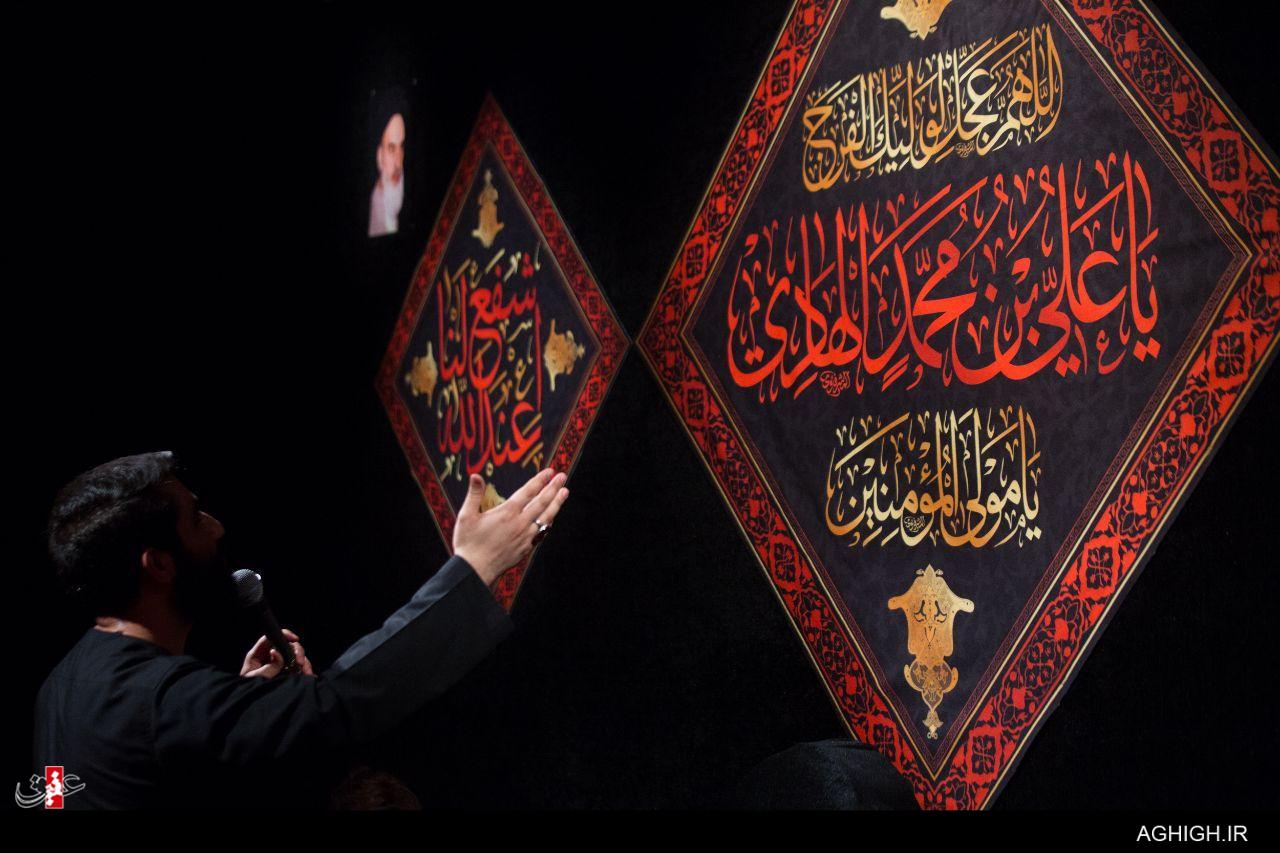 اللهم عجل لوليك الفرج
يا علي بن محمد الهادي
يا مولى المؤمنين
اشفع لنا
عند الله
عقیق
AGHIGH.IR